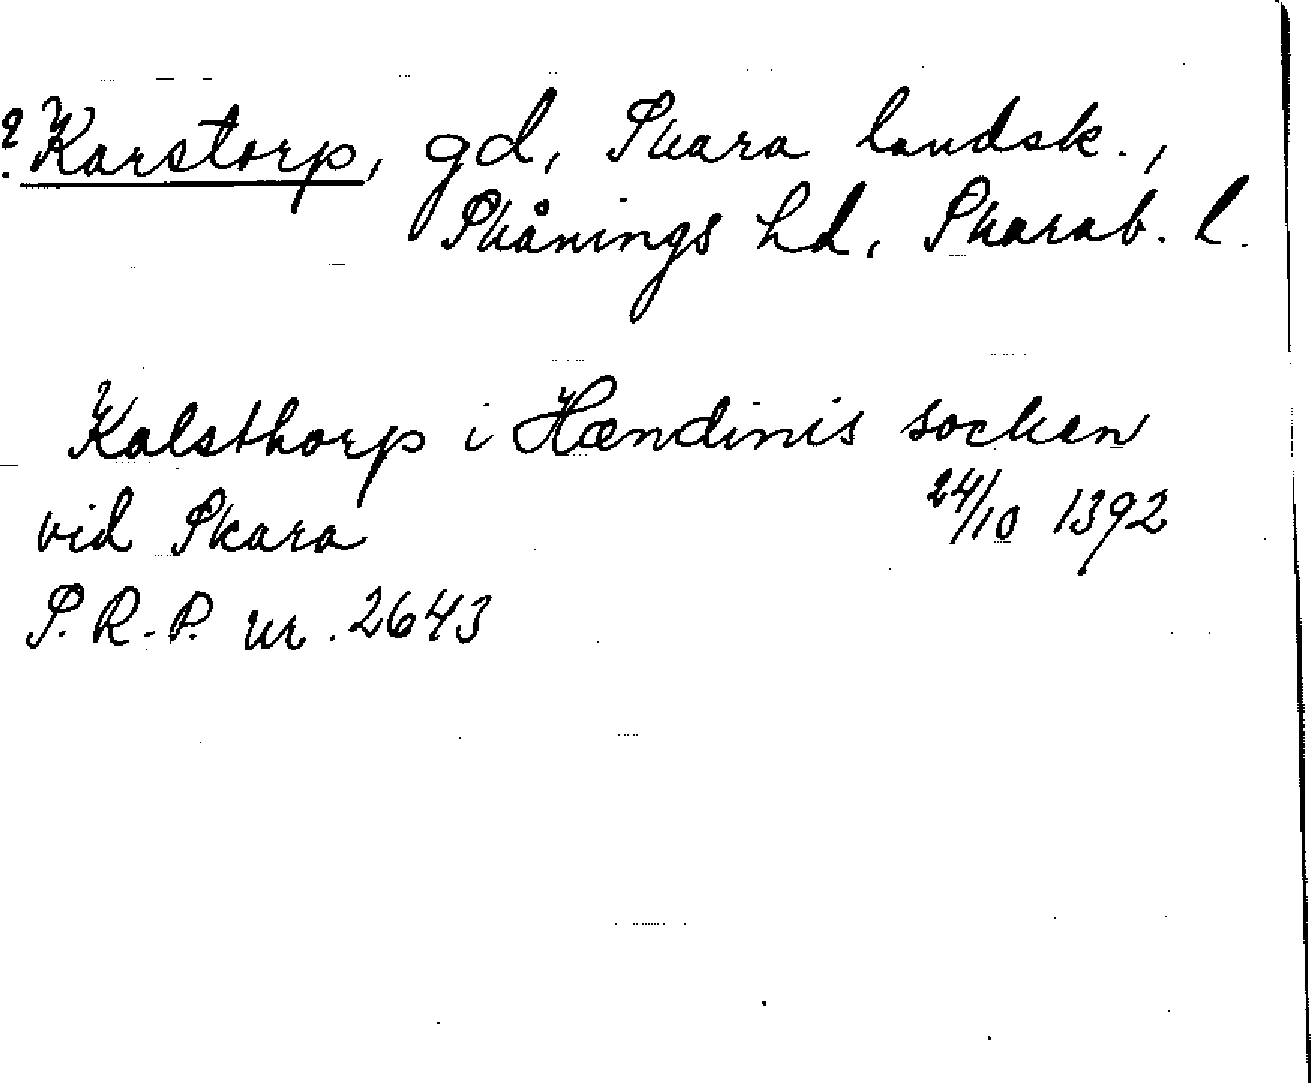 ? Karstorp, gd, Skara landsk.,
Skånings hd, Skarab. l.
Kalsthorp i Hændinis socken
vid Skara 24/10 1392
S.R.P. nr. 2643